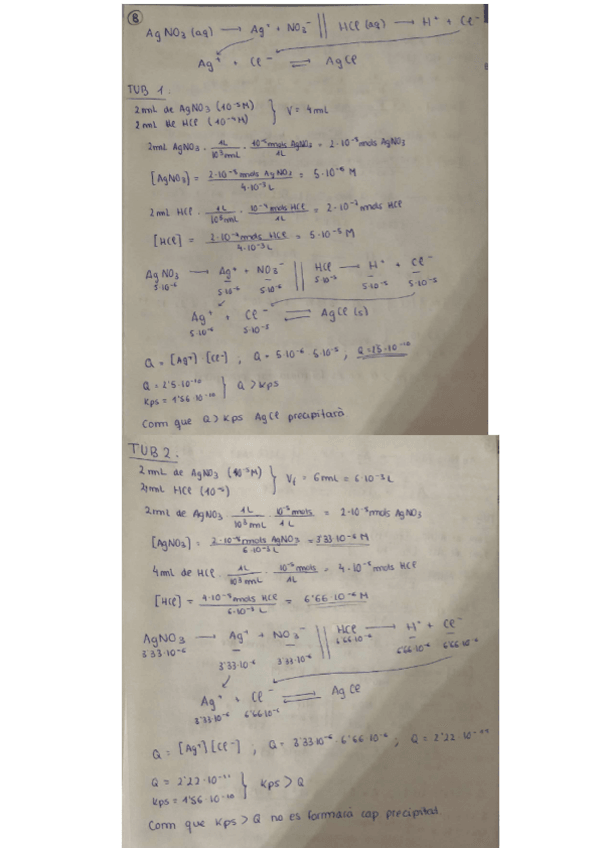 8
AgNO₃ (aq) → Ag⁺ + NO₃⁻ || HCl (aq) → H⁺ + Cl⁻
Ag⁺ + Cl⁻ ⇌ AgCl
TUB 1.
2mL de AgNO₃ (10⁻⁵M) } V = 4mL
2mL de HCl (10⁻⁴M)
2mL AgNO₃ · 1L/10³mL · 10⁻⁵mols AgNO₃/1L = 2·10⁻⁸ mols AgNO₃
[AgNO₃] = 2·10⁻⁸ mols AgNO₃/4·10⁻³L = 5·10⁻⁶ M
2mL HCl · 1L/10³mL · 10⁻⁴ mols HCl/1L = 2·10⁻⁷ mols HCl
[HCl] = mols HCl/4·10⁻³L = 5·10⁻⁵ M
AgNO₃ → Ag⁺ + NO₃⁻ || HCl → H⁺ + Cl⁻
5·10⁻⁶ 5·10⁻⁶ 5·10⁻⁶ 5·10⁻⁵ 5·10⁻⁵ 5·10⁻⁵
Ag⁺ + Cl⁻ ⇌ AgCl (s)
5·10⁻⁶ 5·10⁻⁵
Q = [Ag⁺]·[Cl⁻] ; Q = 5·10⁻⁶ · 5·10⁻⁵ ; Q = 2'5·10⁻¹⁰
Q = 2'5·10⁻¹⁰ } Q > Kps
Kps = 1'56·10⁻¹⁰
Com que Q > Kps AgCl precipitarà
TUB 2.
2mL de AgNO₃ (10⁻⁵M) } Vf = 6mL = 6·10⁻³L
HCl (10⁻⁵)
2mL de AgNO₃ · 1L/10³mL · 10⁻⁵mols/1L = 2·10⁻⁸ mols AgNO₃
[AgNO₃] = 2·10⁻⁸ mols AgNO₃/6·10⁻³L = 3'33·10⁻⁶ M
4mL de HCl · 1L/10³mL · 10⁻⁵ mols/1L = 4·10⁻⁸ mols HCl
[HCl] = 4·10⁻⁸ mols HCl/6·10⁻³L = 6'66·10⁻⁶ M
AgNO₃ → Ag⁺ + NO₃⁻ || HCl → H⁺ + Cl⁻
3'33·10⁻⁶ 3'33·10⁻⁶ 3'33·10⁻⁶ 6'66·10⁻⁶ 6'66·10⁻⁶ 6'66·10⁻⁶
Ag⁺ + Cl⁻ ⇌ AgCl
3'33·10⁻⁶ 6'66·10⁻⁶
Q = [Ag⁺][Cl⁻] ; Q = 3'33·10⁻⁶ · 6'66·10⁻⁶ ; Q = 2'22·10⁻¹¹
Q = 2'22·10⁻¹¹ } Kps > Q
Kps = 1'56·10⁻¹⁰
Com que Kps > Q no es formarà cap precipitat.